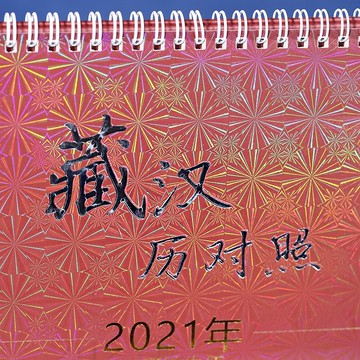 藏汉
历对照
2021年